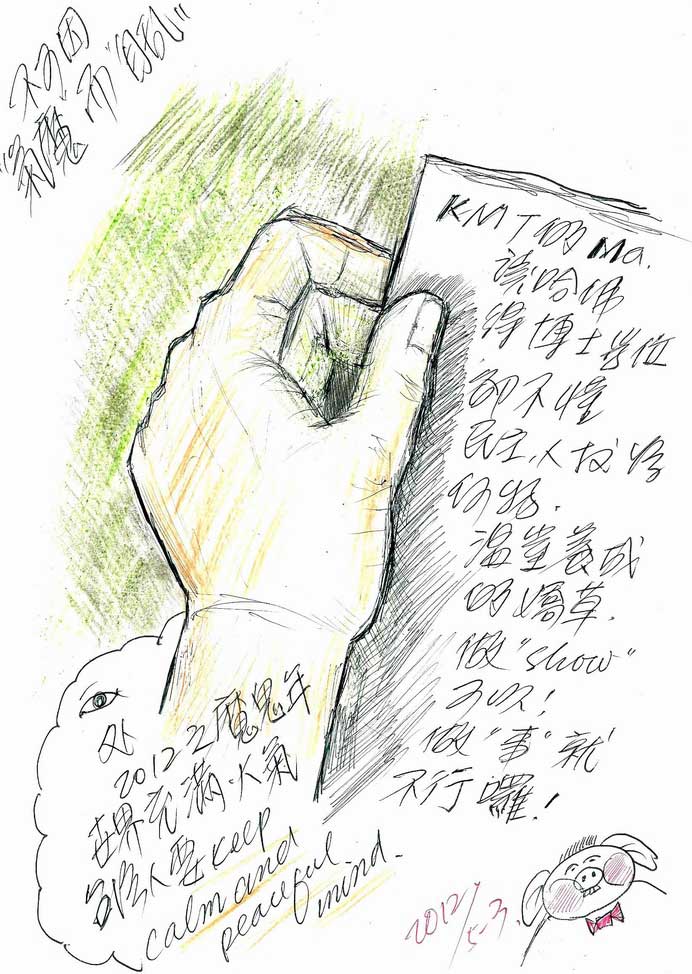 不可因
魔"而"自乱"
KMT的Ma.
讀哈佛
得博士學位
卻不懂
民主,人权為
何物.
溫室養成
的嬌草.
做"show"
可以!
做"事"就
不行囉!
处
2012之魔鬼年
世界充滿火氣
人要keep
calm and
peaceful
mind.
2012/5-3.